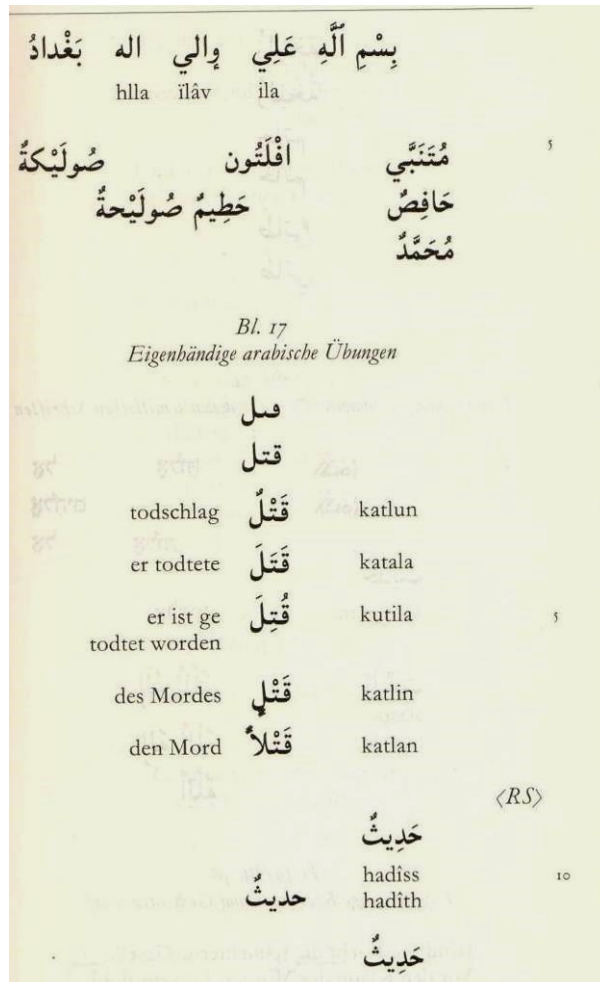 بِسْمِ ٱللَّهِ عَلِي وٕالي اله بَغْدادُ
hlla ïlâv ila
مُتَنَبَّي افْلَتُون صُولَيْكةٌ 5
حَافِصٌ حَطِيمٌ صُولَيْحةٌ
مُحَمَّدٌ
Bl. 17
Eigenhändige arabische Übungen
ڡىل
قتل
todschlag قَتْلٌ katlun
er todtete قَتَلَ katala
er ist ge قُتِلَ kutila 5
todtet worden
des Mordes قَتْلٍ katlin
den Mord قَتْلاً katlan
⟨RS⟩
حَدِيثٌ
hadîss 10
حديثٌ hadîth
حَدِيثٌ